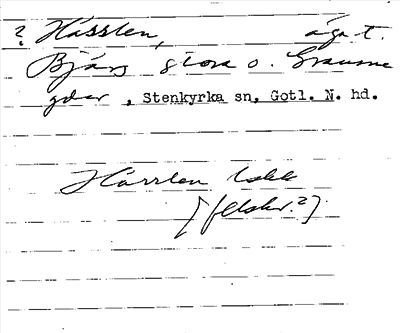 ? Hässlen, äga t.
Bjärs stora o. Graune
gdar, Stenkyrka sn, Gotl. N. hd.
Hässlen
[felskr.?]